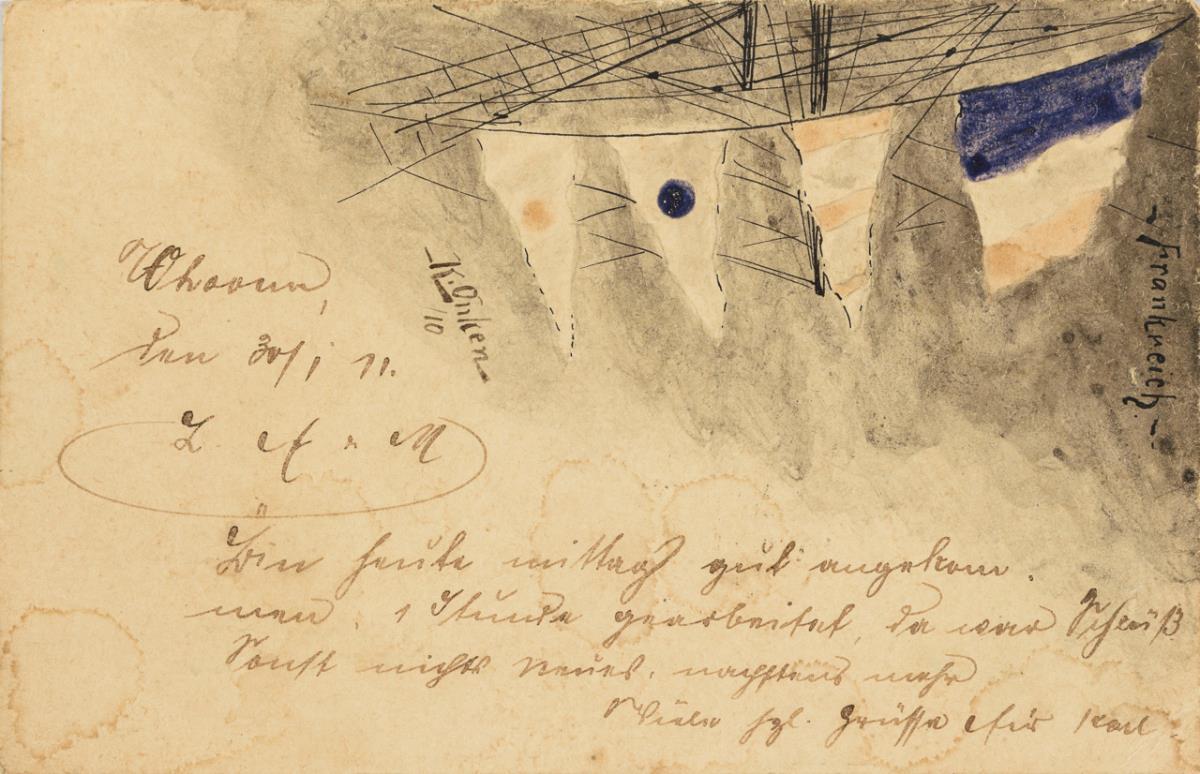 den 30/1 11.
L. E. u. M
Bin heute mittag gut angekom.
men. 1 Stunde gearbeitet, da war Schluß
Sonst nichts neues. nächstens mehr
Viele hzl. Grüsse Euer Karl
K. Onken
/10
- Frankreich. -